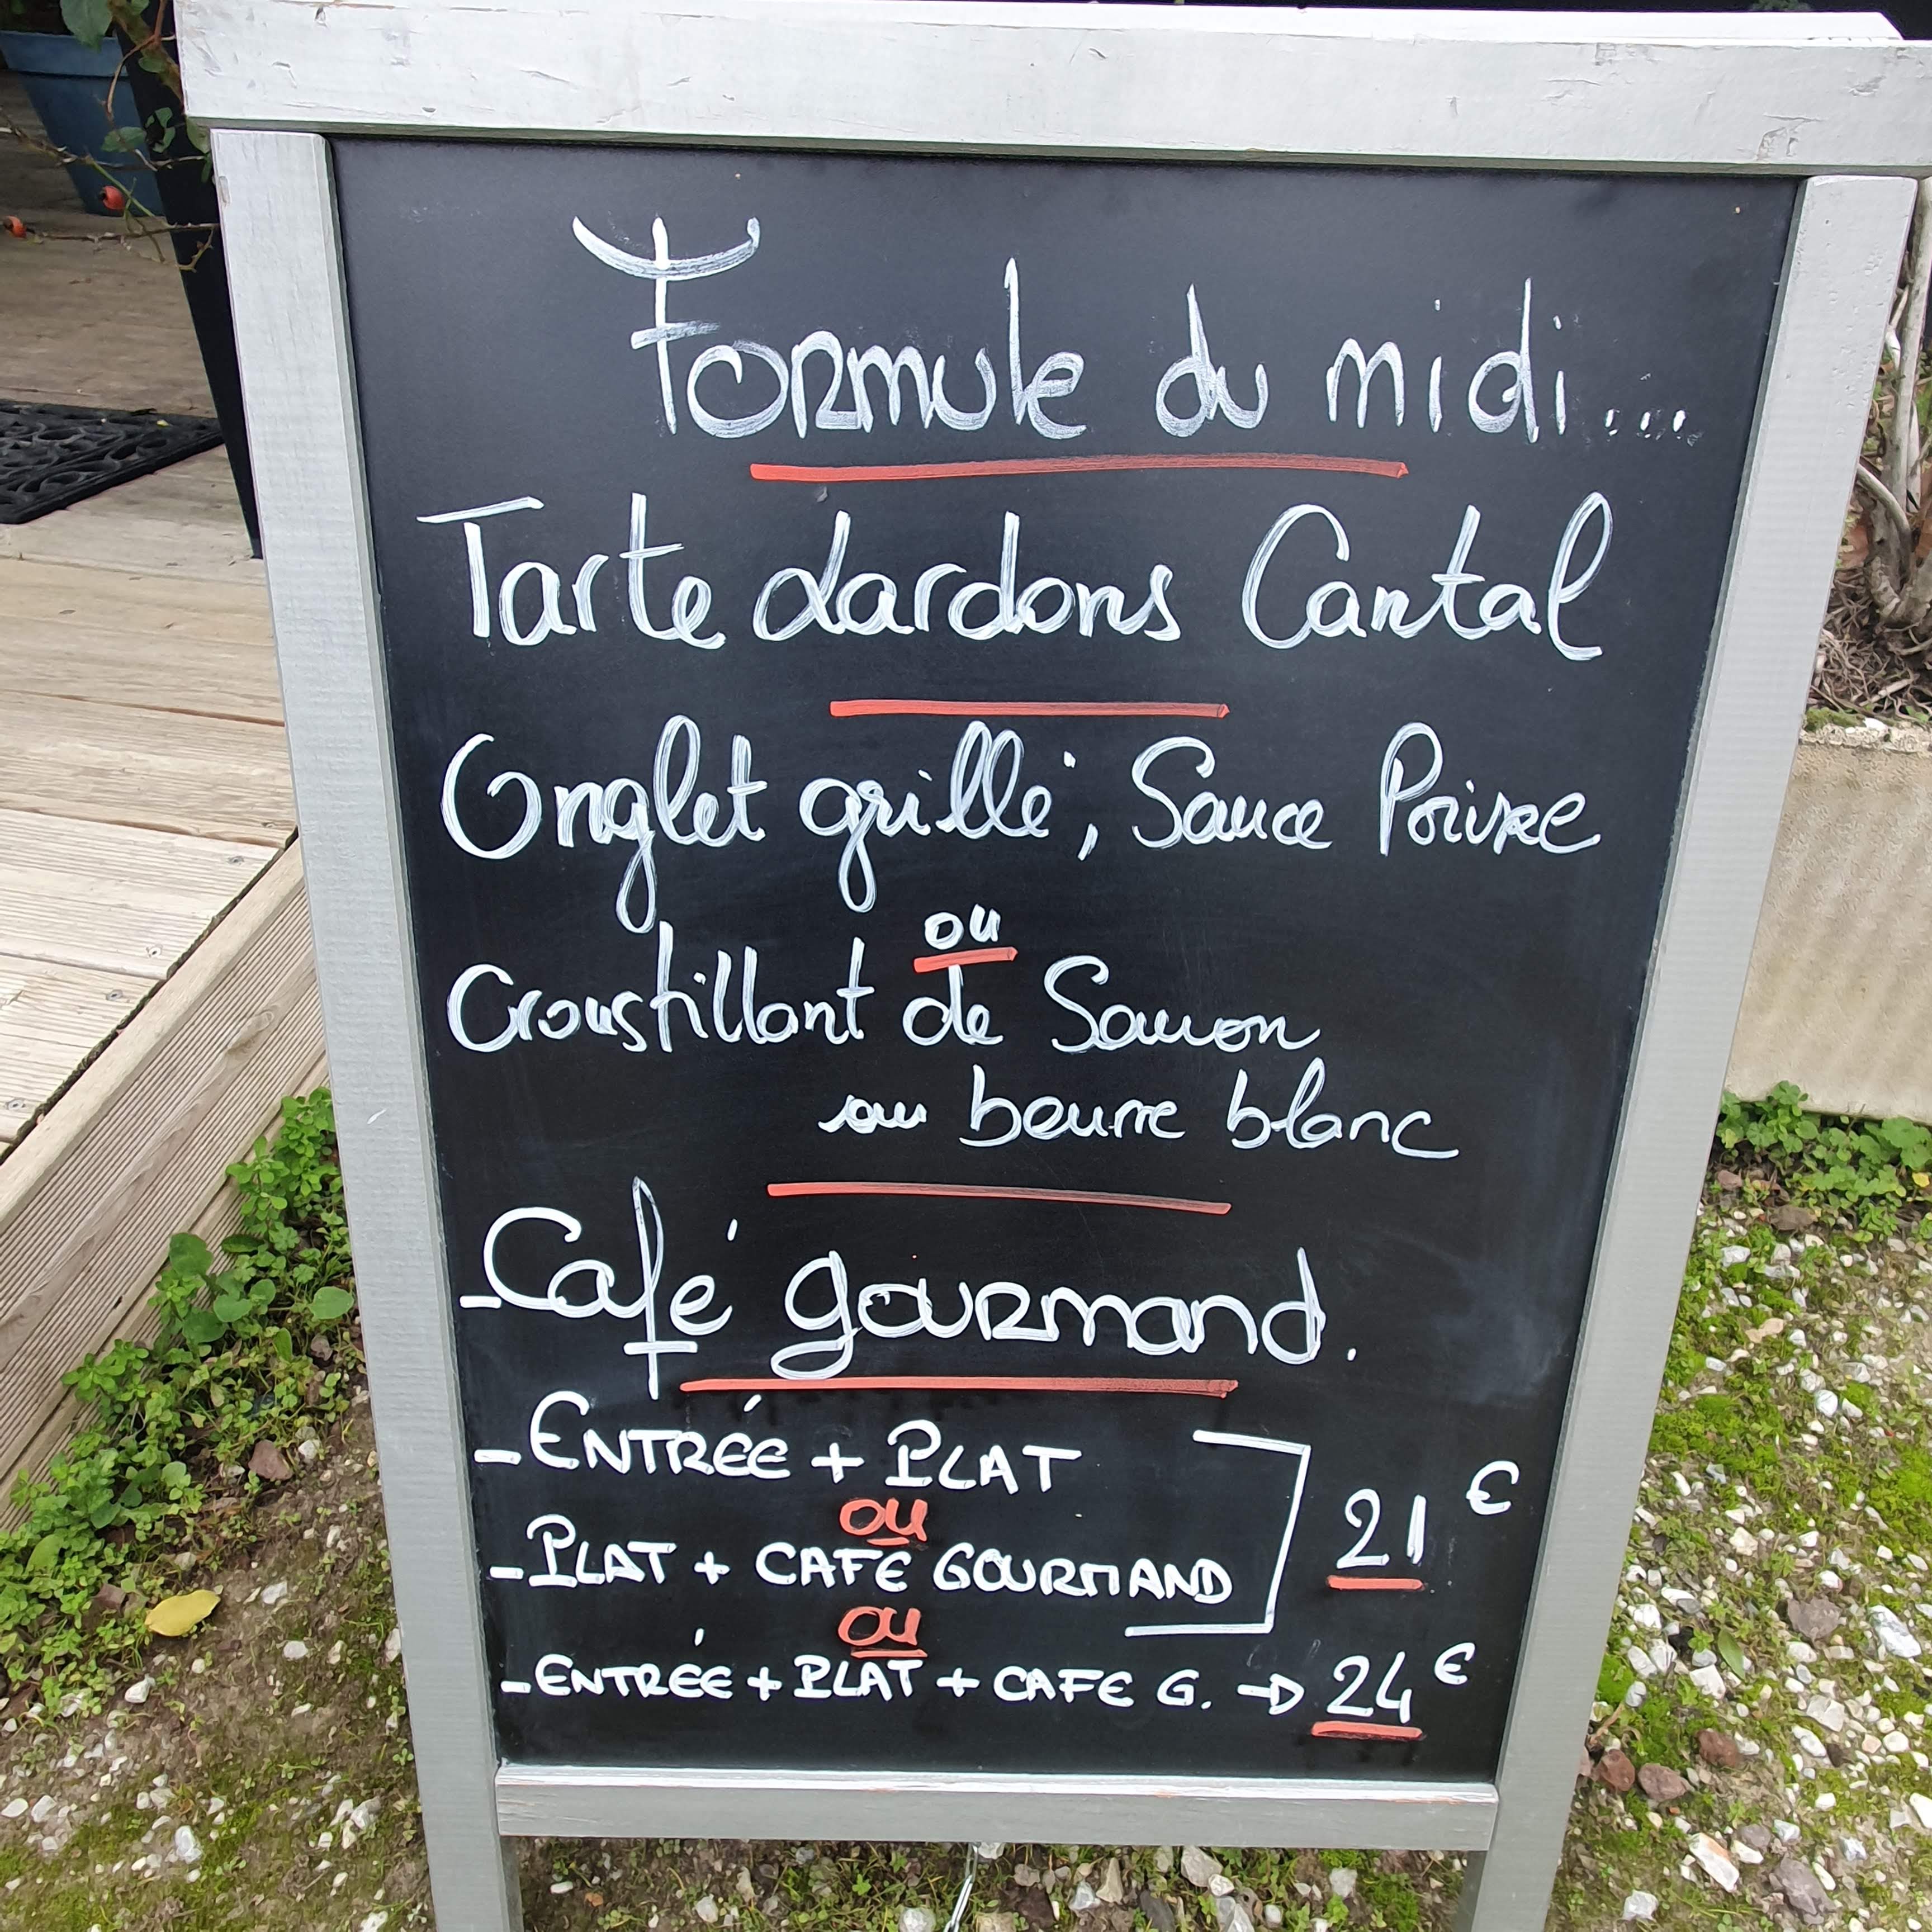 Formule du midi...
Tarte Lardons Cantal
Onglet grillé, Sauce Poivre
ou
Croustillant de Saumon
au beurre blanc
-Café gourmand.
-ENTRÉE + PLAT
OU
21 €
-PLAT + CAFE GOURMAND
OU
-ENTRÉE + PLAT + CAFE G. → 24 €